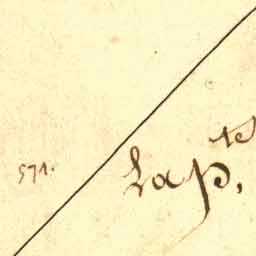 571.
Lap,te